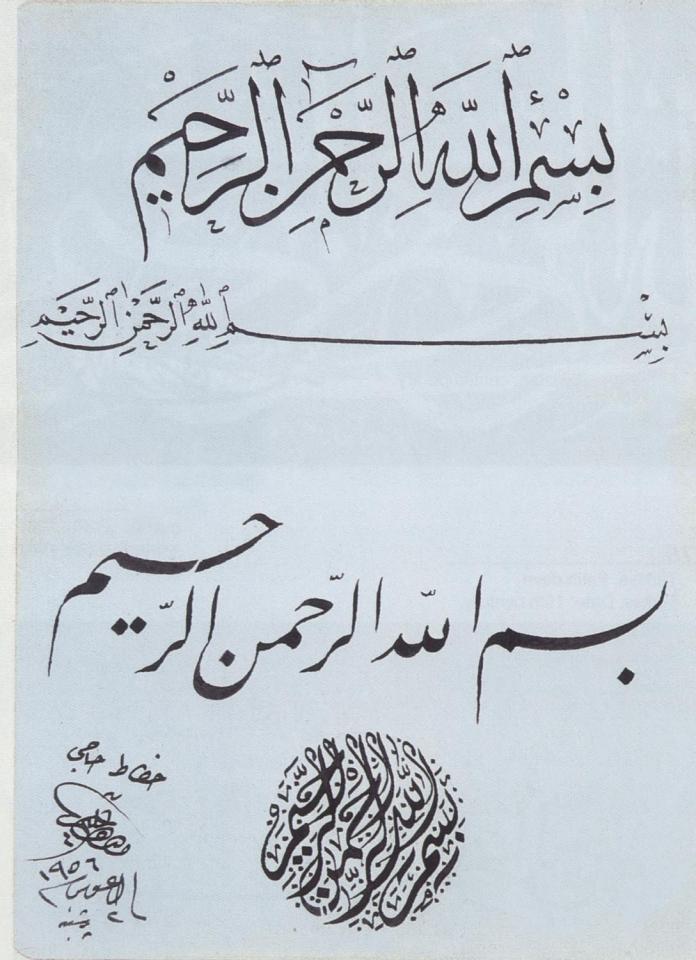 بِسْمِ ٱللَّهِ ٱلرَّحْمٰنِ ٱلرَّحِيمِ
بِسْمِ ٱللَّهِ ٱلرَّحْمٰنِ ٱلرَّحِيمِ
بسم الله الرّحمن الرّحیم
بسم الله الرحمن الرحيم
خطاط حاجی
١٩٥٦